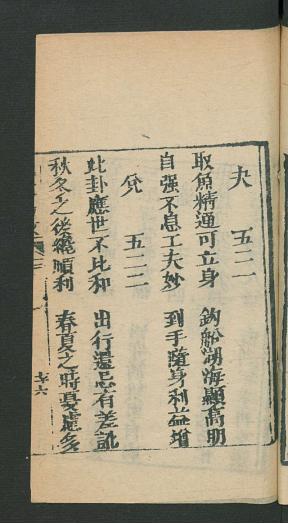 夬 五二一
取魚精通可立身 釣船湖海顯高明
自强不息工夫妙 到手隨身利益增
兌 五二二
此卦應世不比和 出行還忌有差訛
秋冬之後纔順利 春夏之時憂慮多
十六